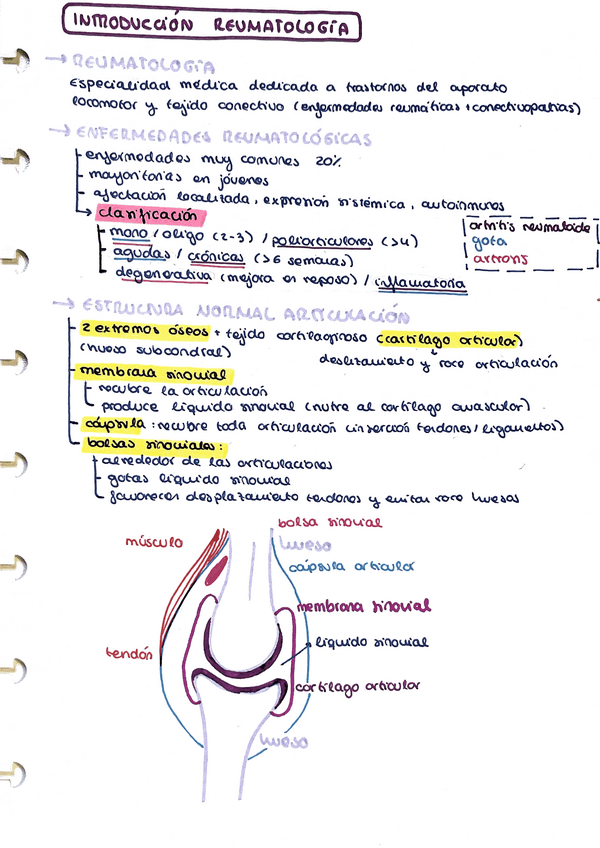 INTRODUCCIÓN REUMATOLOGÍA
→ REUMATOLOGÍA
Especialidad médica dedicada a trastornos del aparato
locomotor y tejido conectivo (enfermedades reumáticas + conectivopatías)
→ ENFERMEDADES REUMATOLÓGICAS
- enfermedades muy comunes 20%
- mayoritarias en jóvenes
- afectación localizada, expresión sistémica, autoinmunes
→ clasificación
- mono / oligo (2-3) / poliarticulares (>4)
- agudas / crónicas (>6 semanas)
- degenerativa (mejora en reposo) / inflamatoria
artritis reumatoide
gota
artrosis
→ ESTRUCTURA NORMAL ARTICULACIÓN
- 2 extremos óseos + tejido cartilaginoso (cartílago articular)
(hueso subcondral)
deslizamiento y roce articulación
- membrana sinovial
- recubre la articulación
- produce líquido sinovial (nutre al cartílago avascular)
- cápsula: recubre toda articulación (inserción tendones / ligamentos)
- bolsas sinoviales:
- alrededor de las articulaciones
- gotas líquido sinovial
- favorecen desplazamiento tendones y evitar roce huesos
bolsa sinovial
músculo
hueso
cápsula articular
membrana sinovial
líquido sinovial
tendón
cartílago articular
hueso